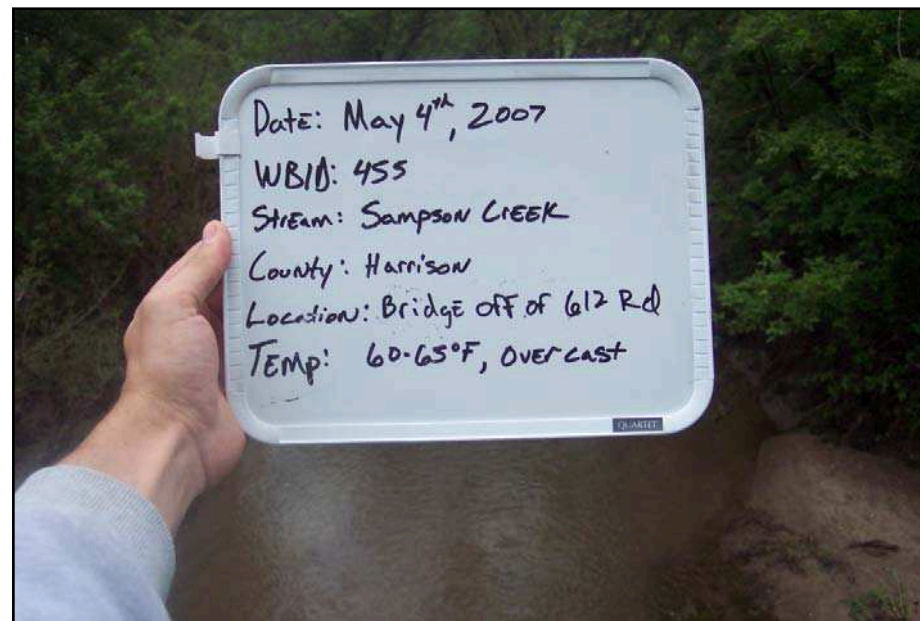 Date: May 4th, 2007
WBID: 455
Stream: Sampson Creek
County: Harrison
Location: Bridge off of 612 Rd
Temp: 60-65°F, overcast
QUARTET